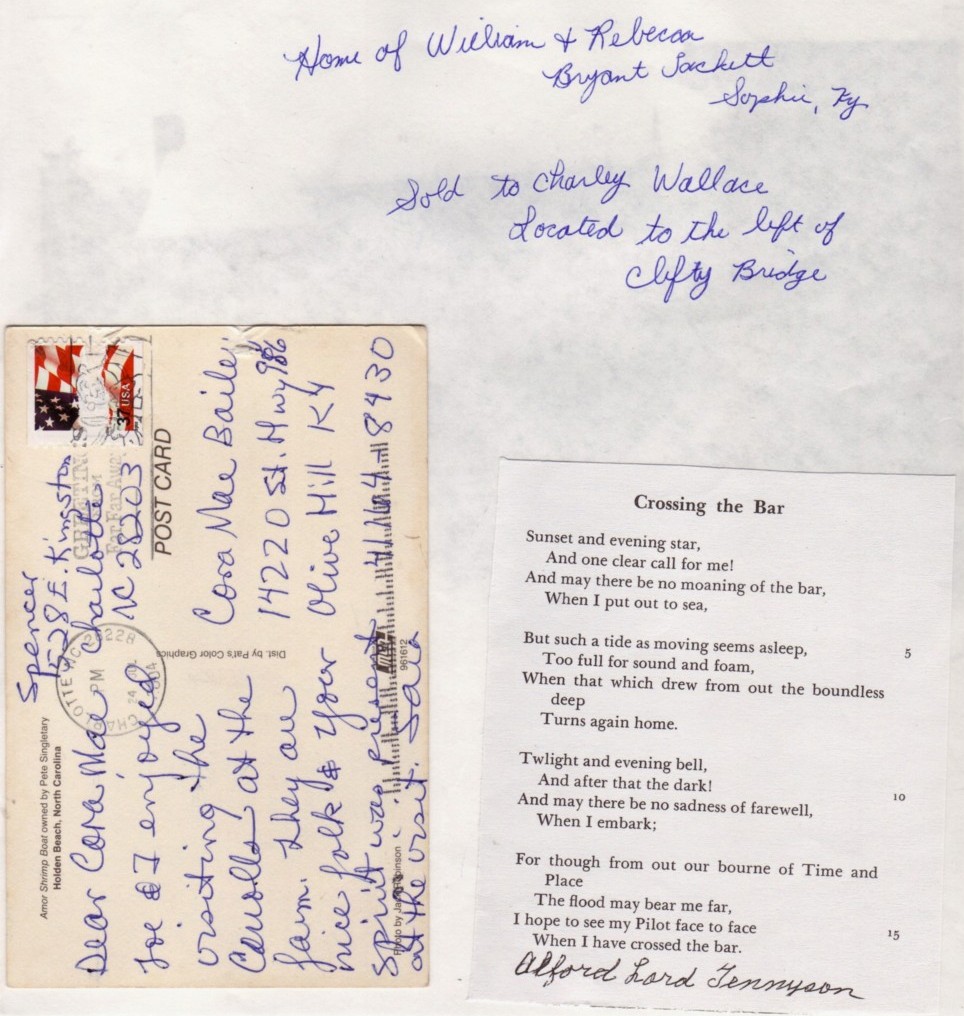 Home of William & Rebecca
Bryant Sackett
Sophie, Ky
Sold to Charley Wallace
Located to the left of
Clifty Bridge
Amor Shrimp Boat owned by Pete Singletary
Holden Beach, North Carolina
Spencer
528 E. Kingston
Charlotte
NC 28203
Dear Cora Mae
Joe & I enjoyed
visiting the
Carrolls at the
farm. They are
nice folk & your
spirit was present
at the visit.
37 USA
GREETING
CHARLOTTE NC 28228
PM
24
POST CARD
Cora Mae Bailey
14220 St. Hwy 986
Olive Hill KY
41164-8430
Dist. by Pat's Color Graphics
961612
Photo by Jack Robinson
Crossing the Bar
Sunset and evening star,
And one clear call for me!
And may there be no moaning of the bar,
When I put out to sea,
But such a tide as moving seems asleep, 5
Too full for sound and foam,
When that which drew from out the boundless
deep
Turns again home.
Twlight and evening bell,
And after that the dark! 10
And may there be no sadness of farewell,
When I embark;
For though from out our bourne of Time and
Place
The flood may bear me far,
I hope to see my Pilot face to face 15
When I have crossed the bar.
Alford Lord Tennyson